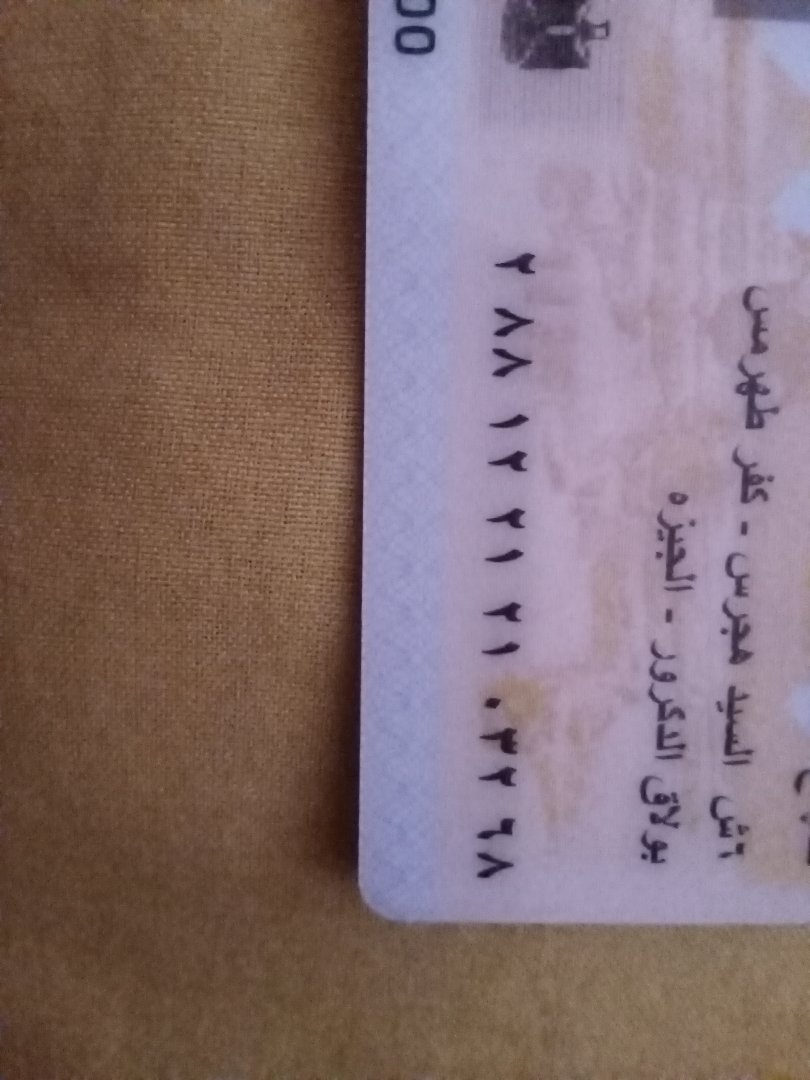 ش السيد هجرس - كفر طهرمس
بولاق الدكرور - الجيزه
٢ ٨٨ ١٢ ٢١ ٢١ ٠٣٢ ٩٨
00